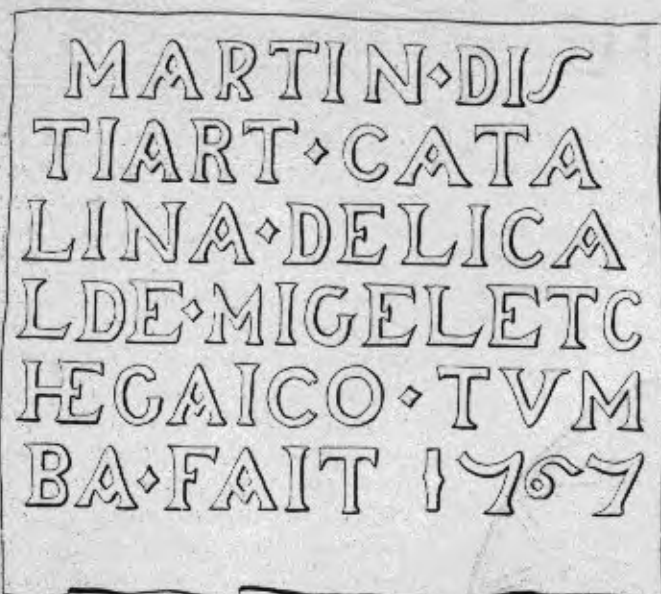 MARTIN⋄DIS
TIART⋄CATA
LINA⋄DELICA
LDE⋄MIGELETC
HEGAICO⋄TVM
BA⋄FAIT 1767